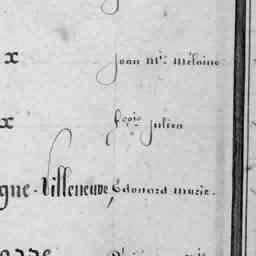 x Jean M.ie Méloine
x f.çois Julien
gne-Villeneuve, Edouard marie.